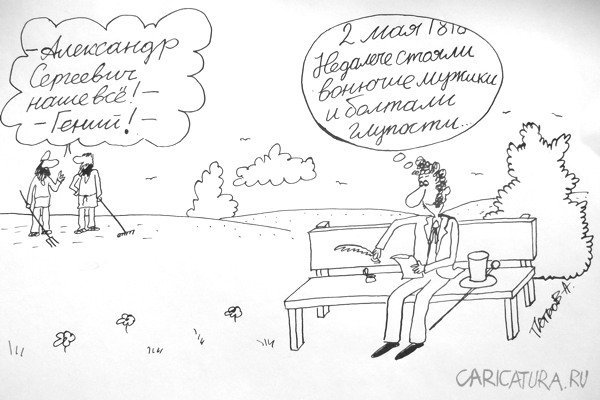 -Александр
Сергеевич
наше всё!-
-Гений!-
2 мая 1818
Недалече стояли
вонючие мужики
и болтали
глупости...
Петров А.
CARICATURA.RU